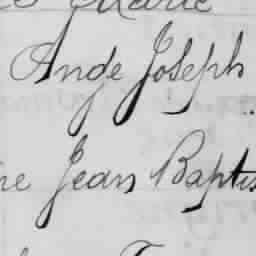 Marie
Ange Joseph
Jean Baptis